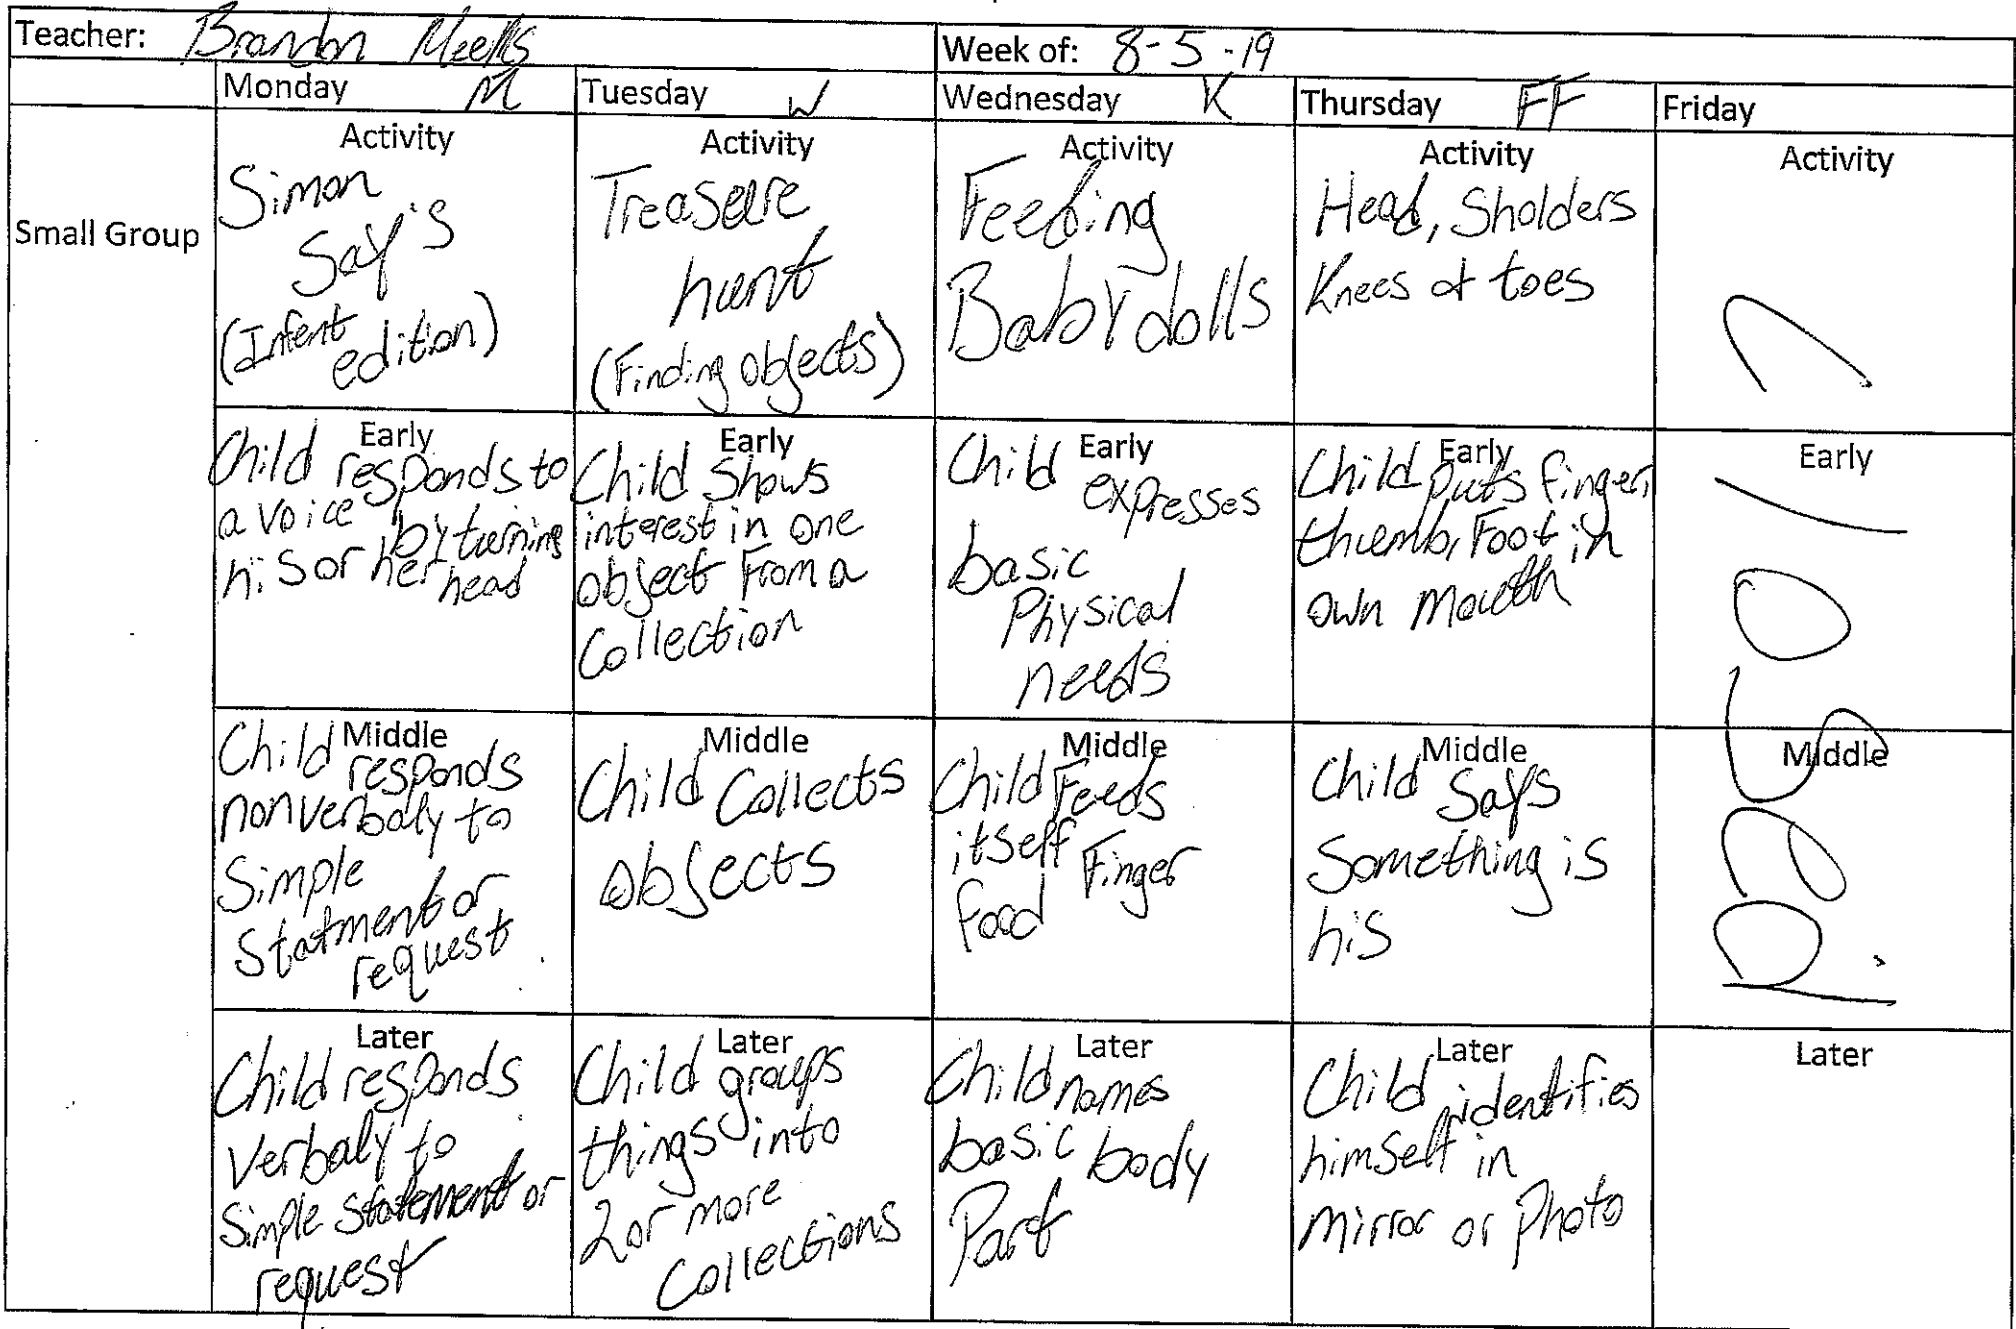 Teacher: Brandon Meeks
Week of: 8-5-19
Monday M
Tuesday W
Wednesday K
Thursday FF
Friday
Small Group
Activity
Simon
Say's
(Infent
edition)
Activity
Treasure
hunt
(Finding objects)
Activity
Feeding
Baby dolls
Activity
Head, Sholders
Knees & toes
Activity
Closed
Early
Child responds to
a voice by turning
his or her head
Early
Child shows
interest in one
object From a
Collection
Early
Child expresses
basic
Physical
needs
Early
Child puts finger,
thumb, Foot in
own mouth
Early
Middle
Child responds
nonverbaly to
Simple
Statment or
request
Middle
Child Collects
objects
Middle
Child Feeds
itself Finger
Food
Middle
Child Says
Something is
his
Middle
Later
Child responds
Verbaly to
Simple Statement or
request
Later
Child groups
things into
2 or more
Collections
Later
Child names
basic body
Part
Later
Child identifies
himself in
mirror or Photo
Later